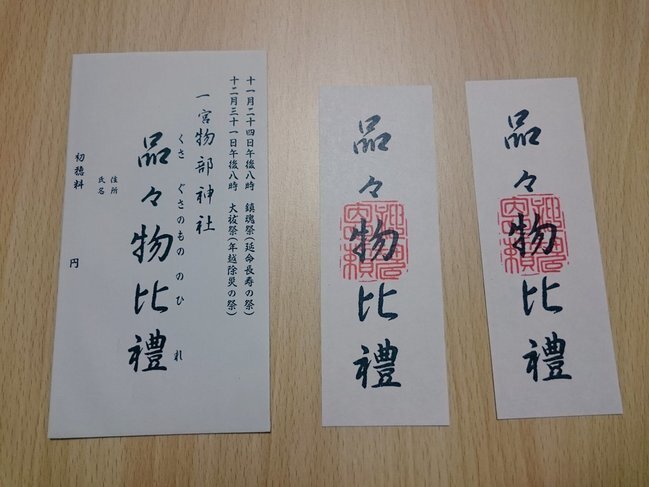 十一月二十四日午後八時　鎮魂祭(延命長寿の祭)
十二月三十一日午後八時　大祓祭(年越除災の祭)
一宮物部神社
くさ　ぐさのもの　のひ　れ
品々物比禮
住所
氏名
初穂料　円
品々物比禮
品々物比禮